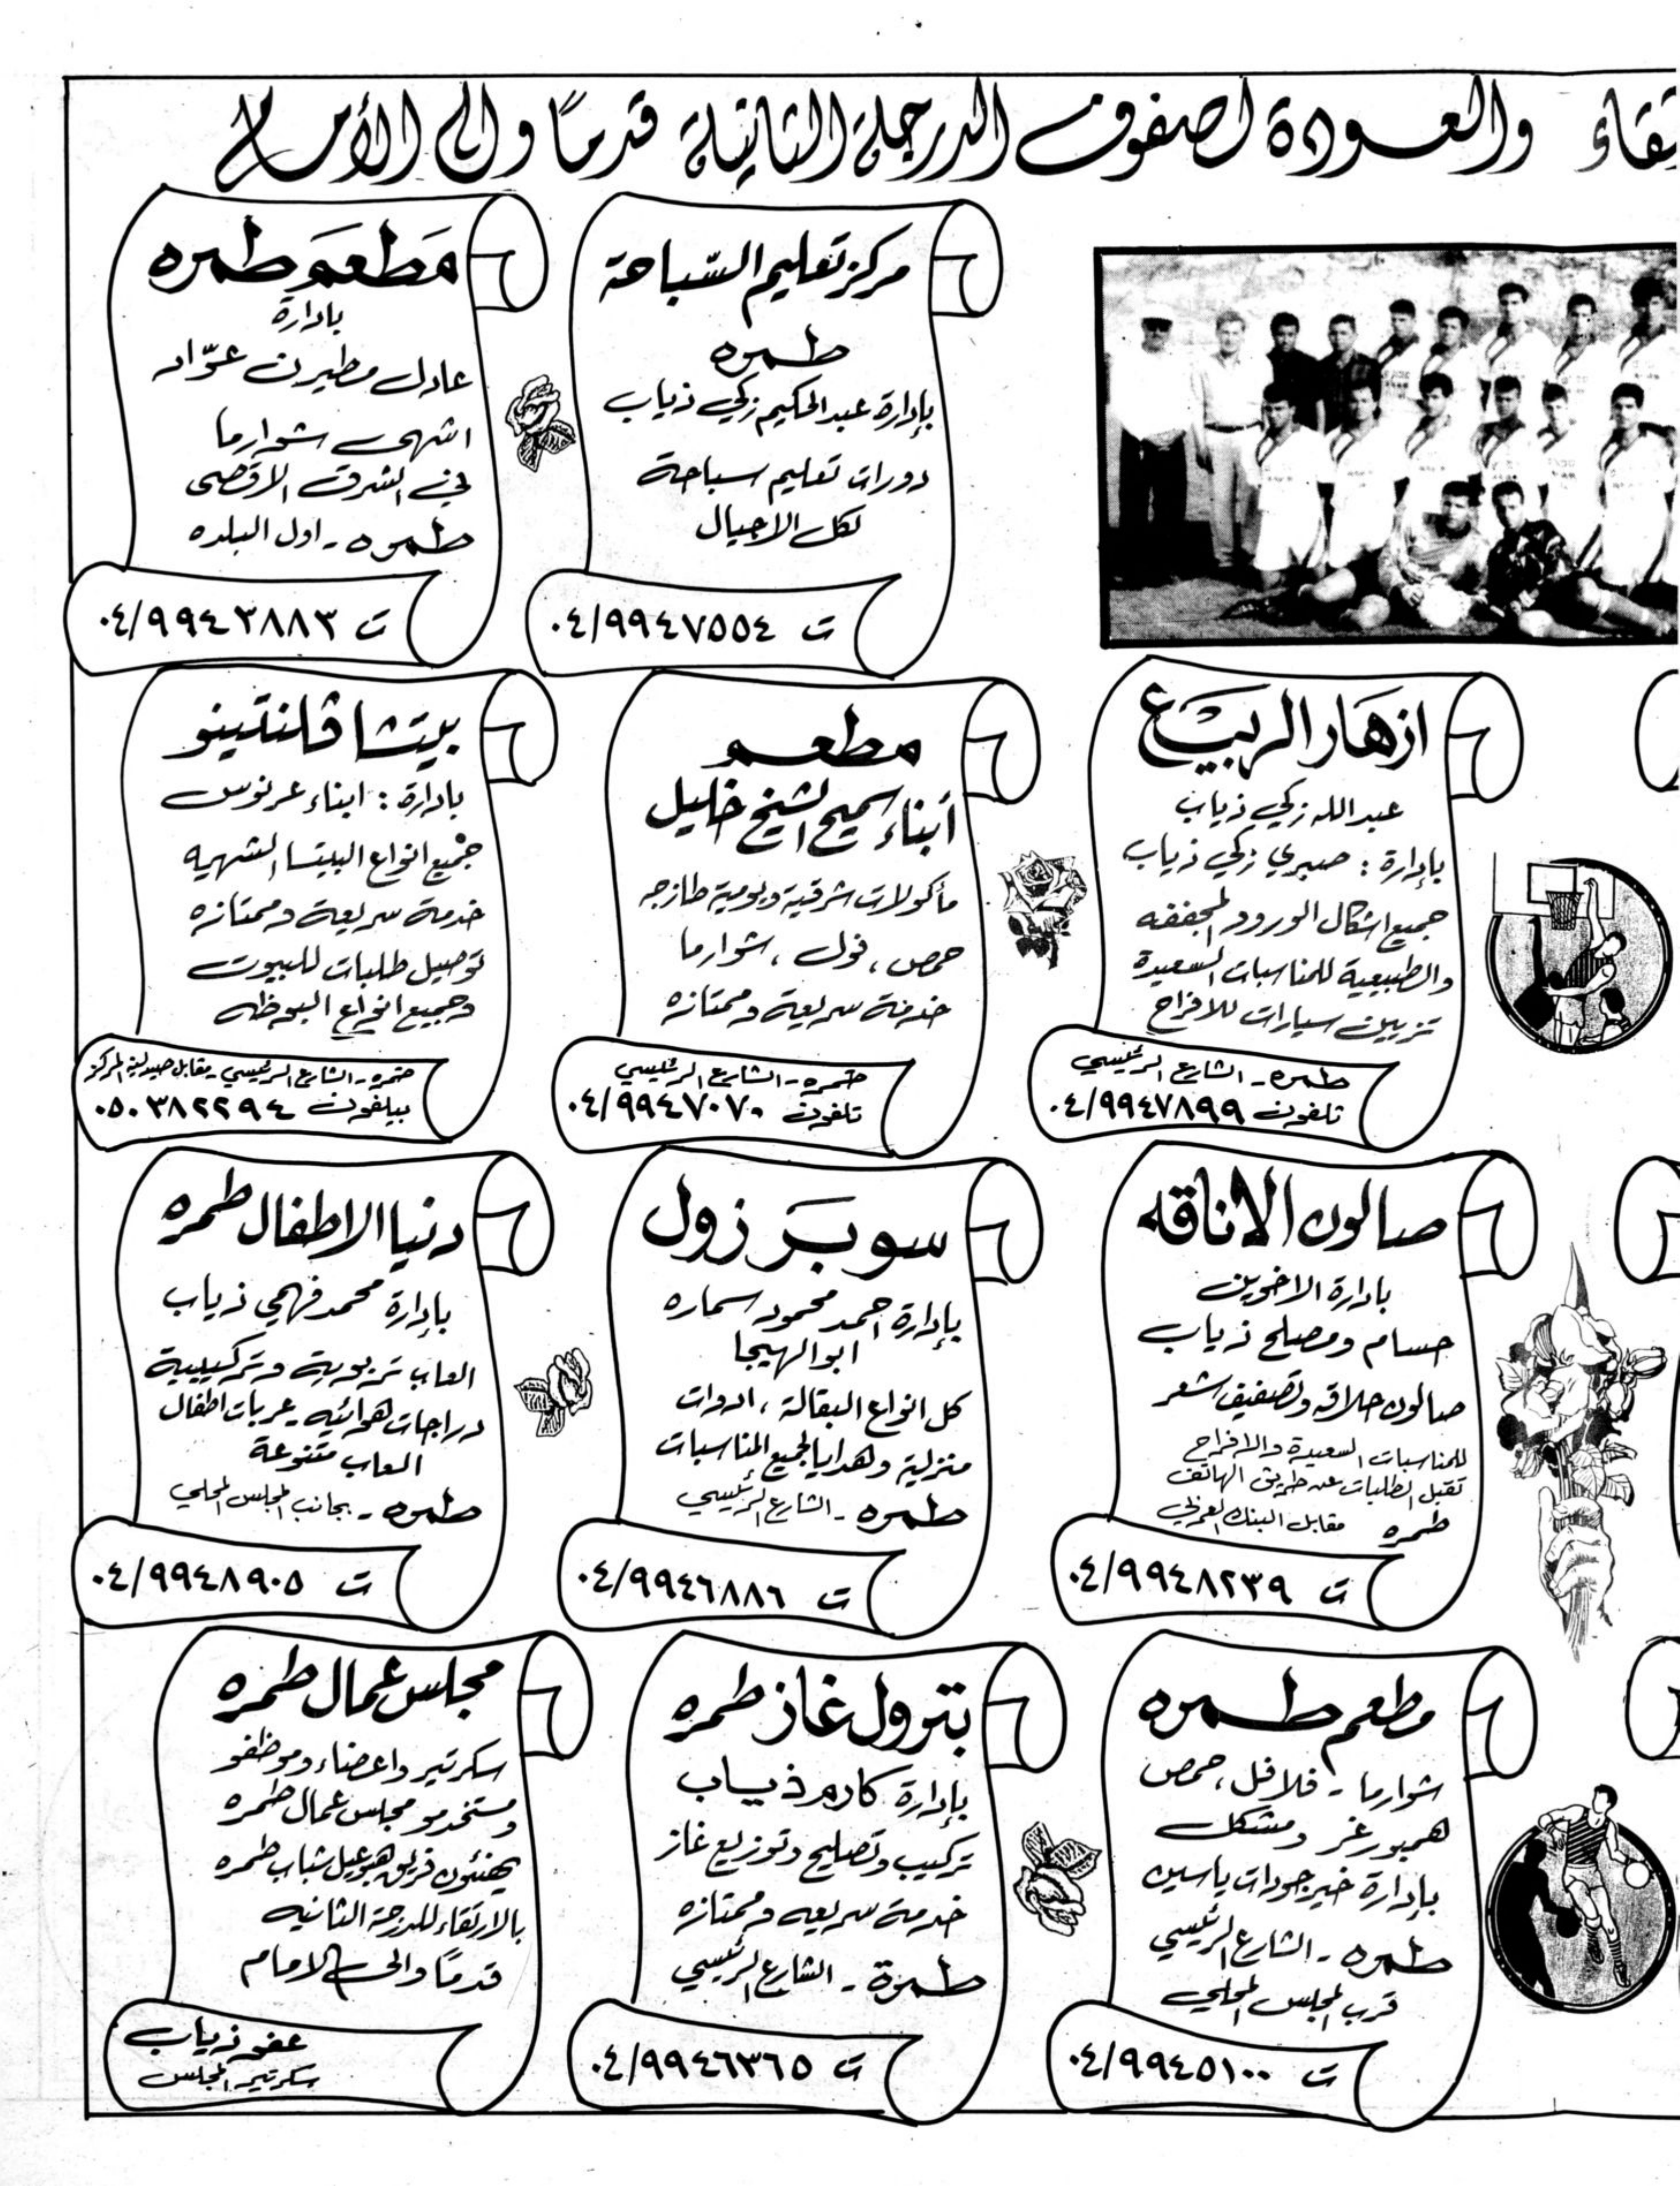 تقاء والعودة لصفوف الدرجة الثانية قدمًا والى الأمام
مركز تعليم السّباحة
طمره
بإدارة عبد الحكيم زكي ذياب
دورات تعليم سباحة
لكل الاجيال
ت ٠٤/٩٩٤٧٥٥٤
مَطعَم طمره
بادارة
عادل مطيرن عوّاد
اشهى شوارما
في الشرق الاقصى
طمره - اول البلده
ت ٠٤/٩٩٤٣٨٨٣
ازهَار الربيْع
عبد الله زكي ذياب
بإدارة : صبري زكي ذياب
جميع اشكال الورود المجففه
والطبيعية للمناسبات السعيدة
تزيين سيارات للافراح
طمره - الشارع الرئيسي
تلفون ٠٤/٩٩٤٧٨٩٩
مطعم
أبناء سميح الشيخ خليل
مأكولات شرقية ويومية طازجه
حمص ، فول ، شوارما
خدمة سريعة وممتازه
طمره - الشارع الرئيسي
تلفون ٠٤/٩٩٤٧٠٧٠
بيتشا ڤلنتينو
بادارة : ابناء عرنوس
جميع انواع البيتسا الشهيه
خدمة سريعة وممتازه
توصيل طلبات للبيوت
وجميع انواع البوظه
طمره - الشارع الرئيسي - مقابل صيدلية المركز
بيلفون ٠٥٠٣٨٢٢٩٤
صالون الاناقه
بادارة الاخوين
حسام ومصلح ذياب
صالون حلاقه وتصفيف شعر
للمناسبات السعيدة والافراح
تقبل الطلبات عن طريق الهاتف
طمره مقابل البنك العربي
ت ٠٤/٩٩٤٨٢٣٩
سوبَر زول
بإدارة احمد محمود سماره
ابو الهيجا
كل انواع البقالة ، ادوات
منزلية وهدايا لجميع المناسبات
طمره - الشارع الرئيسي
ت ٠٤/٩٩٤٦٨٨٦
دنيا الاطفال طمره
بإدارة محمد فهمي ذياب
العاب تربوية وتركيبية
دراجات هوائيه - عربات اطفال
العاب متنوعة
طمره - بجانب المجلس المحلي
ت ٠٤/٩٩٤٨٩٠٥
مطعم طمره
شوارما - فلافل ، حمص
همبورغر ومشكل
بإدارة خير جودات ياسين
طمره - الشارع الرئيسي
قرب المجلس المحلي
ت ٠٤/٩٩٤٥١٠٠
بترول غاز طمره
بإدارة كارم ذياب
تركيب وتصليح وتوزيع غاز
خدمة سريعه وممتازه
طمرة - الشارع الرئيسي
ت ٠٤/٩٩٤٦٣٦٥
مجلس عمال طمره
سكرتير واعضاء وموظفو
ومستخدمو مجلس عمال طمره
يهنئون فريق هبوعيل شباب طمره
بالارتقاء للدرجة الثانيه
قدمًا والى الامام
عفو ذياب
سكرتير المجلس